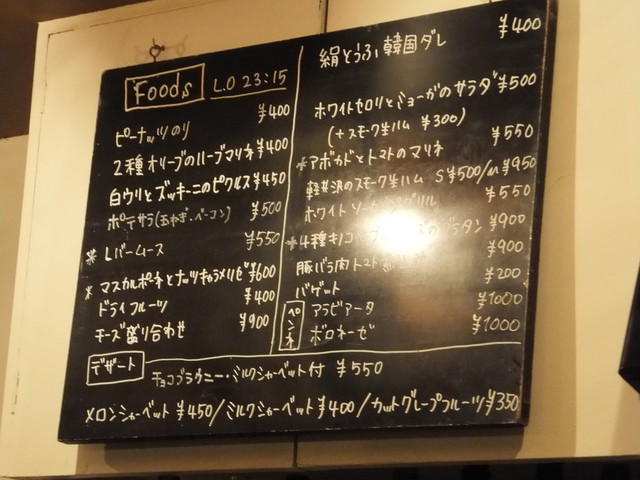 Foods L.O 23:15
ピーナッツのり ¥400
2種オリーブのハーブマリネ ¥400
白ウリとズッキーニのピクルス ¥450
ポテサラ(玉ねぎ・ベーコン) ¥500
※ Lバームース ¥550
※ マスカルポーネとナッツキャラメリゼ ¥600
ドライフルーツ ¥400
チーズ盛り合わせ ¥900
絹とうふ 韓国ダレ ¥400
ホワイトセロリとミョーガのサラダ ¥500
(+スモーク生ハム ¥300)
※アボカドとトマトのマリネ ¥550
軽井沢のスモーク生ハム S¥500/M¥950
ホワイトソーセージグリル ¥550
※4種キノコと のグラタン ¥900
豚バラ肉トマト ¥900
バゲット ¥200
ペンネ
アラビアータ ¥1000
ボロネーゼ ¥1000
デザート
チョコブラウニー・ミルクシャーベット付 ¥550
メロンシャーベット ¥450/ミルクシャーベット ¥400/カットグレープフルーツ ¥350